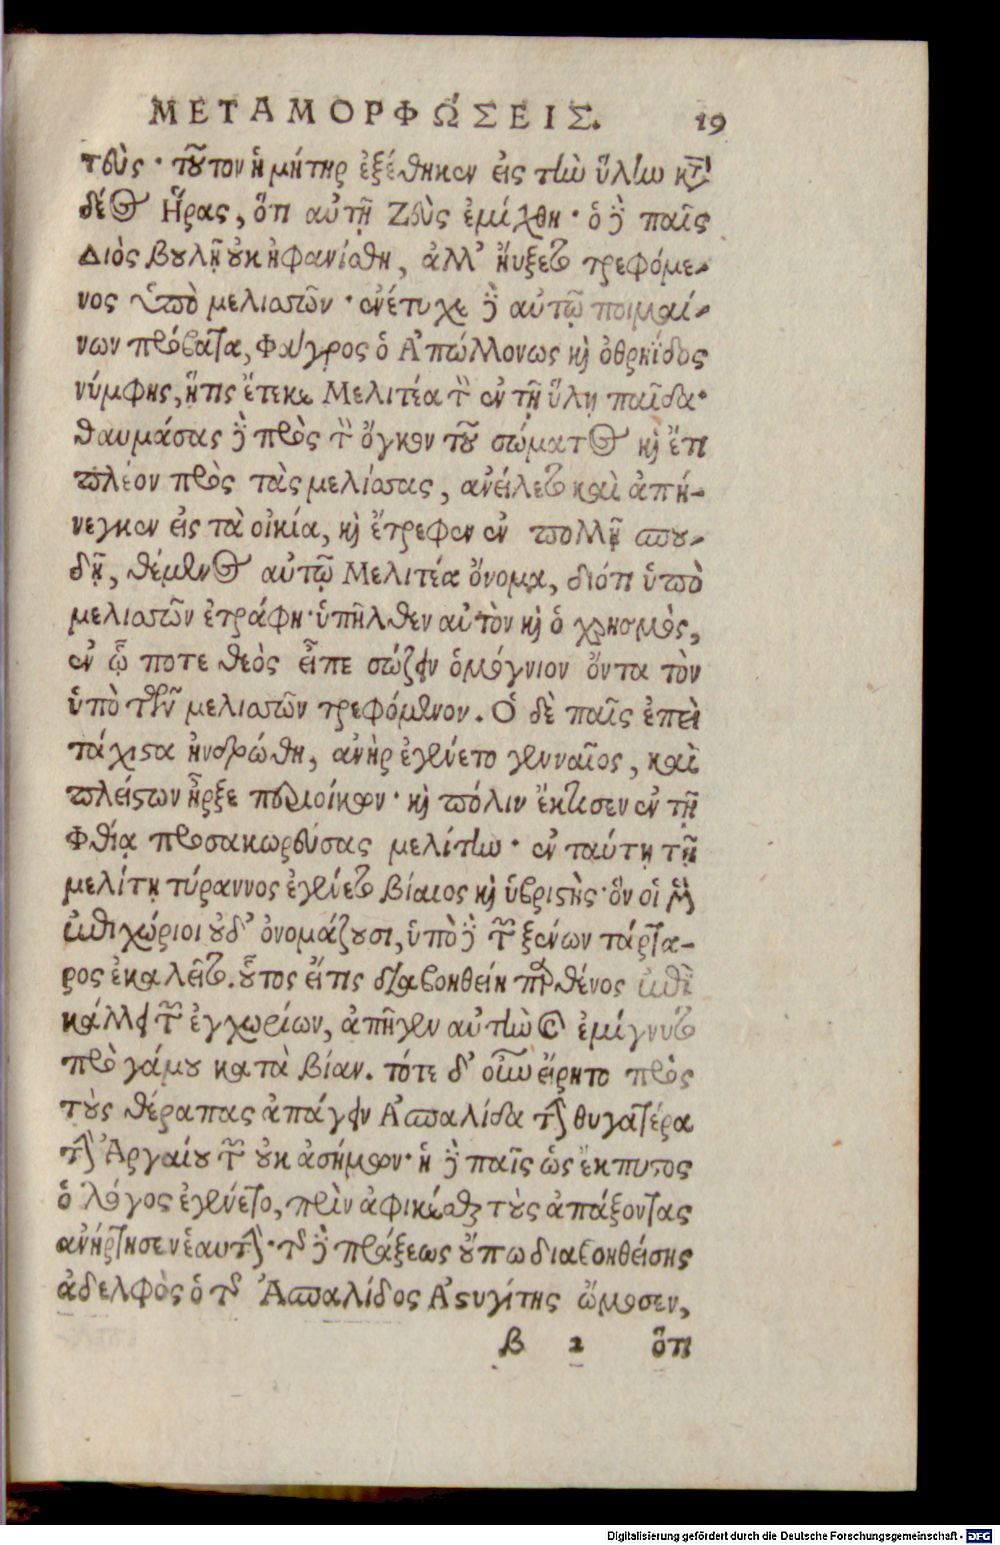 ΜΕΤΑΜΟΡΦΏΣΕΙΣ. 19
τεύς· τοῦτον ἡ μήτηρ ἐξέθηκεν εἰς τὴν ὕλην κατὰ
δέος Ἥρας, ὅτι αὐτῇ Ζεὺς ἐμίχθη· ὁ δὲ παῖς
Διὸς βουλῇ οὐκ ἠφανίσθη, ἀλλ' ηὔξετο τρεφόμε-
νος ὑπὸ μελισσῶν· ἐνέτυχε δὲ αὐτῷ ποιμαί-
νων πρόβατα, Φάγρος ὁ Ἀπόλλωνος καὶ ὀθρηΐδος
νύμφης, ἥτις ἔτεκε Μελιτέα τὸν ἐν τῇ ὕλῃ παῖδα·
θαυμάσας δὲ πρὸς τὸν ὄγκον τοῦ σώματος καὶ ἔτι
πλέον πρὸς τὰς μελίσσας, ἀνείλετο καὶ ἀπή-
νεγκεν εἰς τὰ οἰκία, καὶ ἔτρεφεν ἐν πολλῇ σπου-
δῇ, θέμενος αὐτῷ Μελιτέα ὄνομα, διότι ὑπὸ
μελισσῶν ἐτράφη· ὑπῆλθεν αὐτὸν καὶ ὁ χρησμὸς,
ἐν ᾧ ποτε θεὸς εἶπε σώζειν ὁμόγνιον ὄντα τὸν
ὑπὸ τῶν μελισσῶν τρεφόμενον. Ὁ δὲ παῖς ἐπεὶ
τάχιστα ἠνδρώθη, ἀνὴρ ἐγένετο γενναῖος, καὶ
πλείστων ἦρξε περιοίκων· καὶ πόλιν ἔκτισεν ἐν τῇ
Φθίᾳ προσαγορεύσας μελίτην· ἐν ταύτῃ τῇ
μελίτῃ τύραννος ἐγένετο βίαιος καὶ ὑβριστὴς· ὃν οἱ μὲν
ἐπιχώριοι οὐδ' ὀνομάζουσι, ὑπὸ δὲ τῶν ξένων τάρτα-
ρος ἐκαλεῖτο. οὗτος εἴ τις διαβοηθείη παρθένος ἐπὶ
κάλλει τῶν ἐγχωρίων, ἀπῆγεν αὐτὴν καὶ ἐμίγνυτο
πρὸ γάμου κατὰ βίαν. τότε δ' οὖν εἴρητο πρὸς
τοὺς θέραπας ἀπάγειν Ἀσπαλίδα τὴν θυγατέρα
τὴν Ἀργαίου τῶν οὐκ ἀσήμων· ἡ δὲ παῖς ὡς ἔκπυστος
ὁ λόγος ἐγένετο, πρὶν ἀφικέσθαι τοὺς ἀπάξοντας
ἀνήρτησεν ἑαυτὴν· τῆς δὲ πράξεως οὔπω διαβοηθείσης
ἀδελφὸς ὁ τῆς Ἀσπαλίδος Ἀστυγίτης ὤμοσεν,
β 2 ὅτι
Digitalisierung gefördert durch die Deutsche Forschungsgemeinschaft - DFG